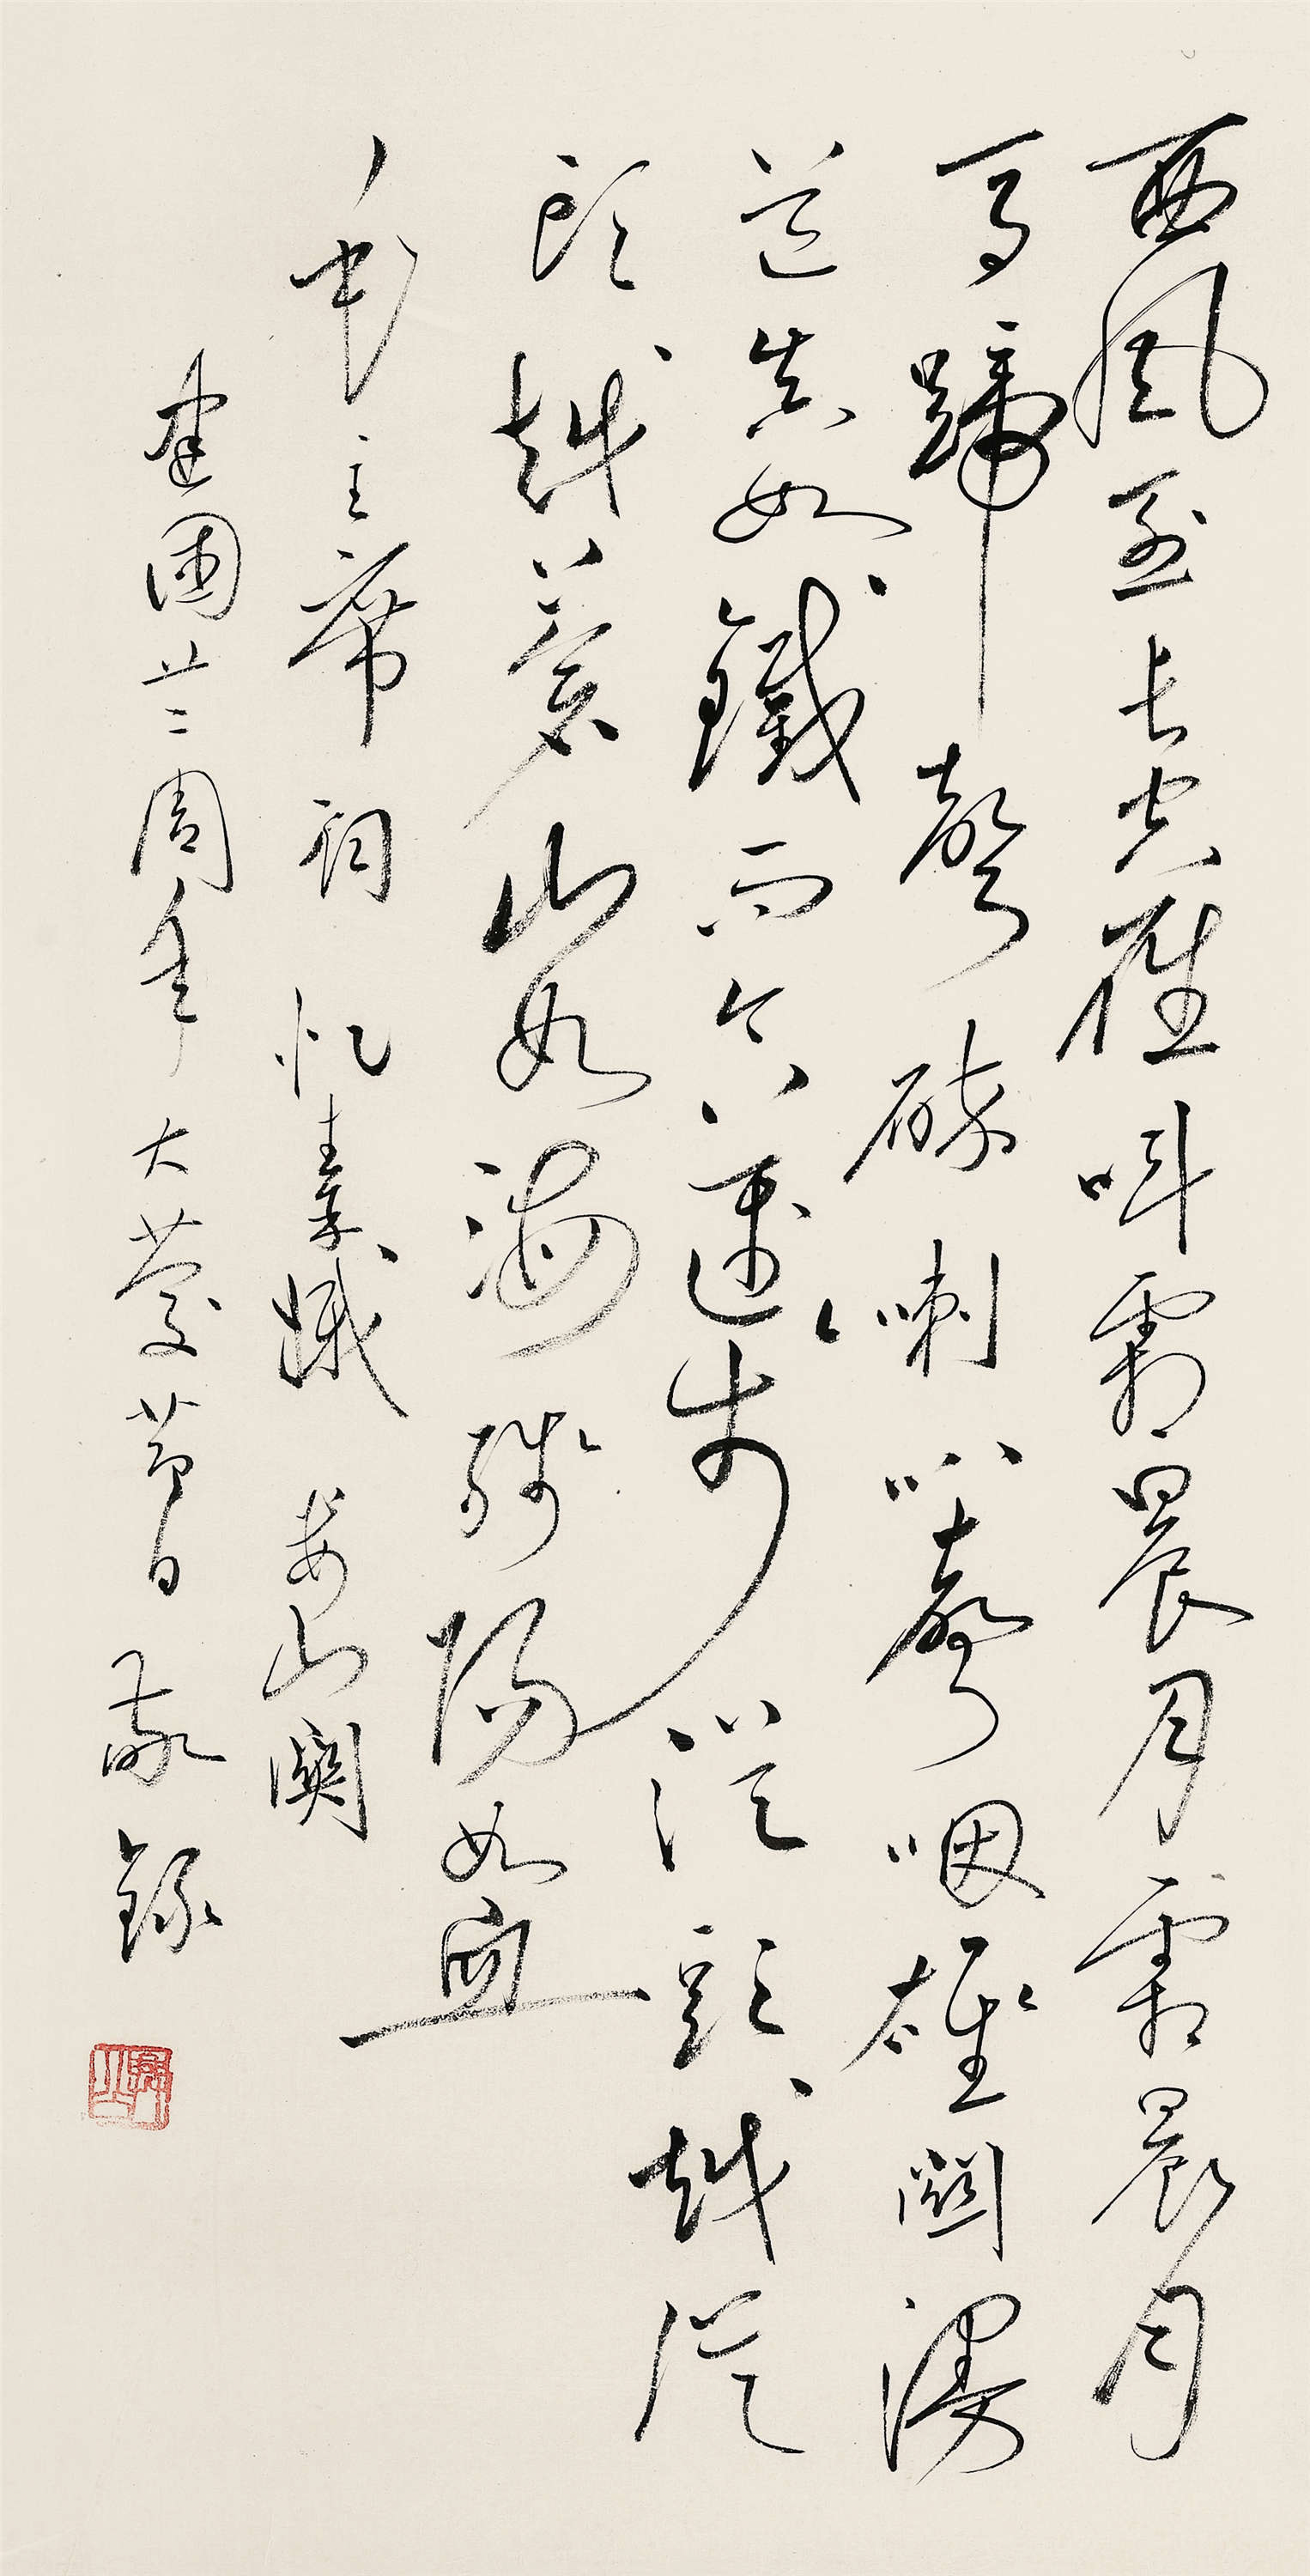 西風烈長空雁叫霜晨月霜晨月
馬蹄聲碎喇叭聲咽雄關漫
道真如鐵而今邁步從頭越從
頭越蒼山如海殘陽如血
毛主席詞憶秦娥婁山關
建國廿二周年大慶節日敬錄